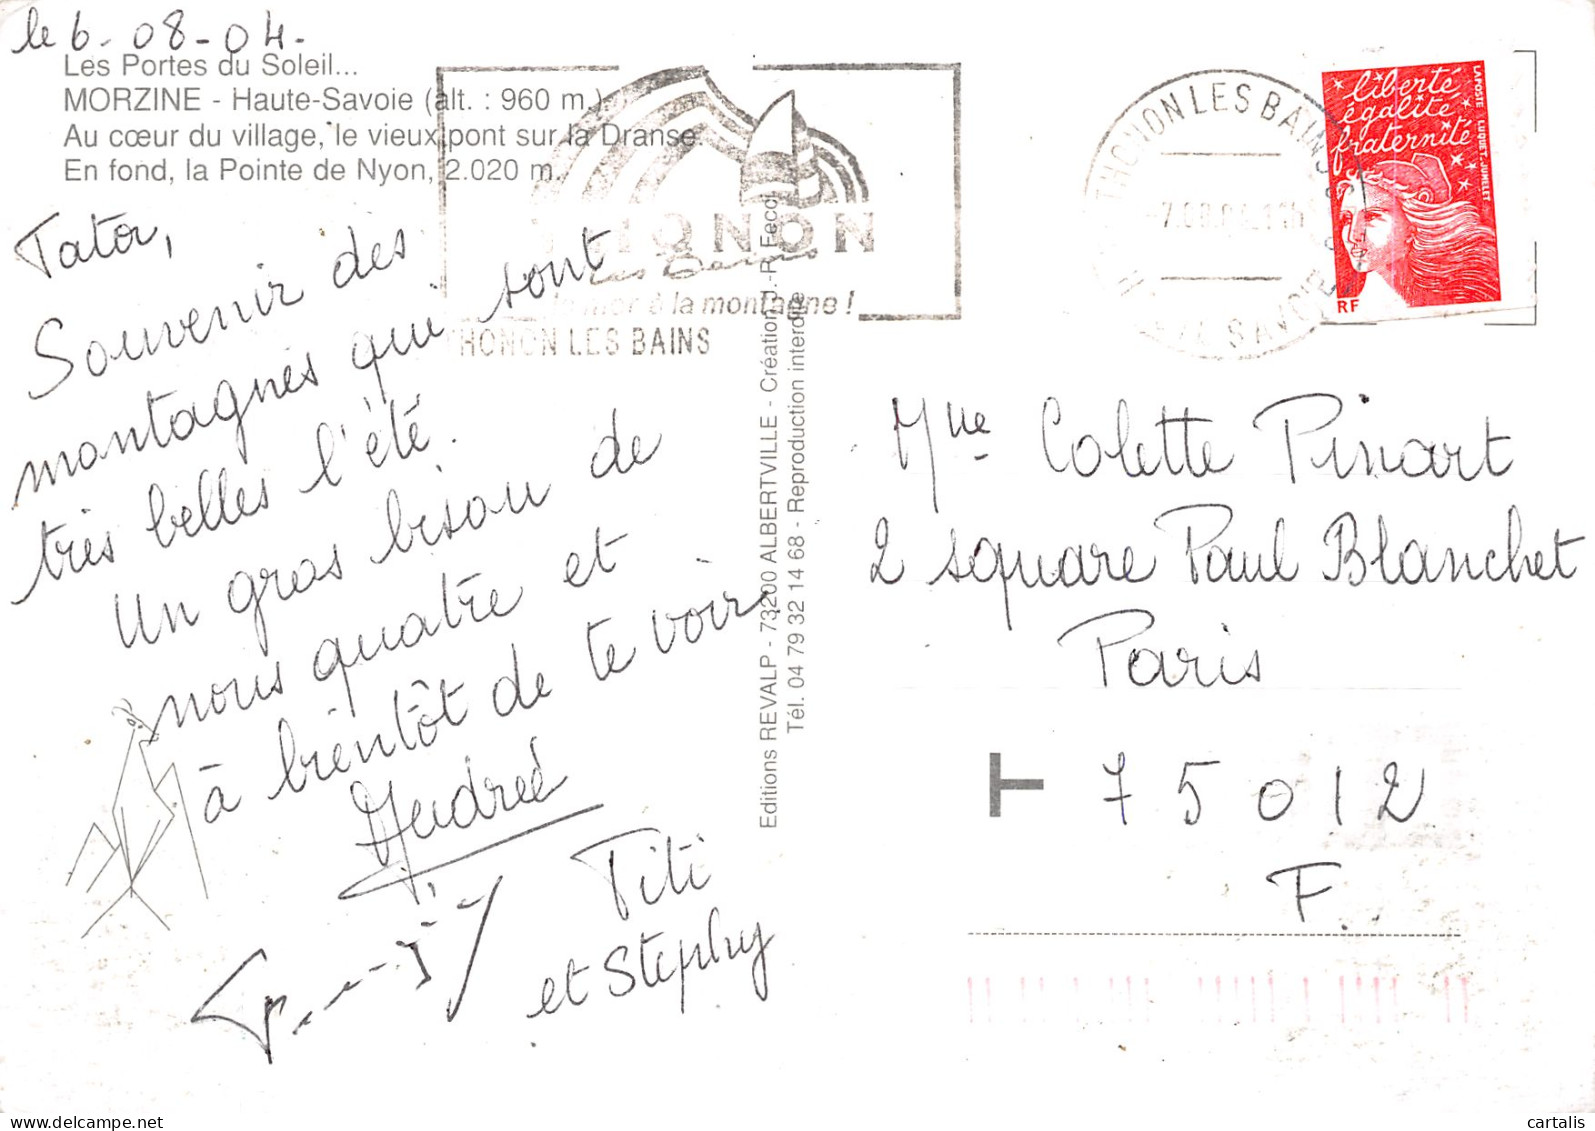 le 6-08-04-
Les Portes du Soleil...
MORZINE - Haute-Savoie (alt. : 960 m.).
Au cœur du village, le vieux pont sur la Dranse.
En fond, la Pointe de Nyon, 2.020 m.
Tator,
Souvenir des
montagnes qui sont
très belles l'été.
Un gros bisou de
nous quatre et
à bientôt de te voir
Andrée
Titi
et Stephy
THONON
les Bains
la mer à la montagne !
THONON LES BAINS
Editions REVALP - 73200 ALBERTVILLE - Création J.-R. Fecci
Tél. 04 79 32 14 68 - Reproduction interdite
THONON LES BAINS
SAVOIE
liberté
égalité
fraternité
LA POSTE LUQUET. JUMELET
RF
Mlle Colette Pinart
2 square Paul Blanchet
Paris
T 75012
F.
cartalis